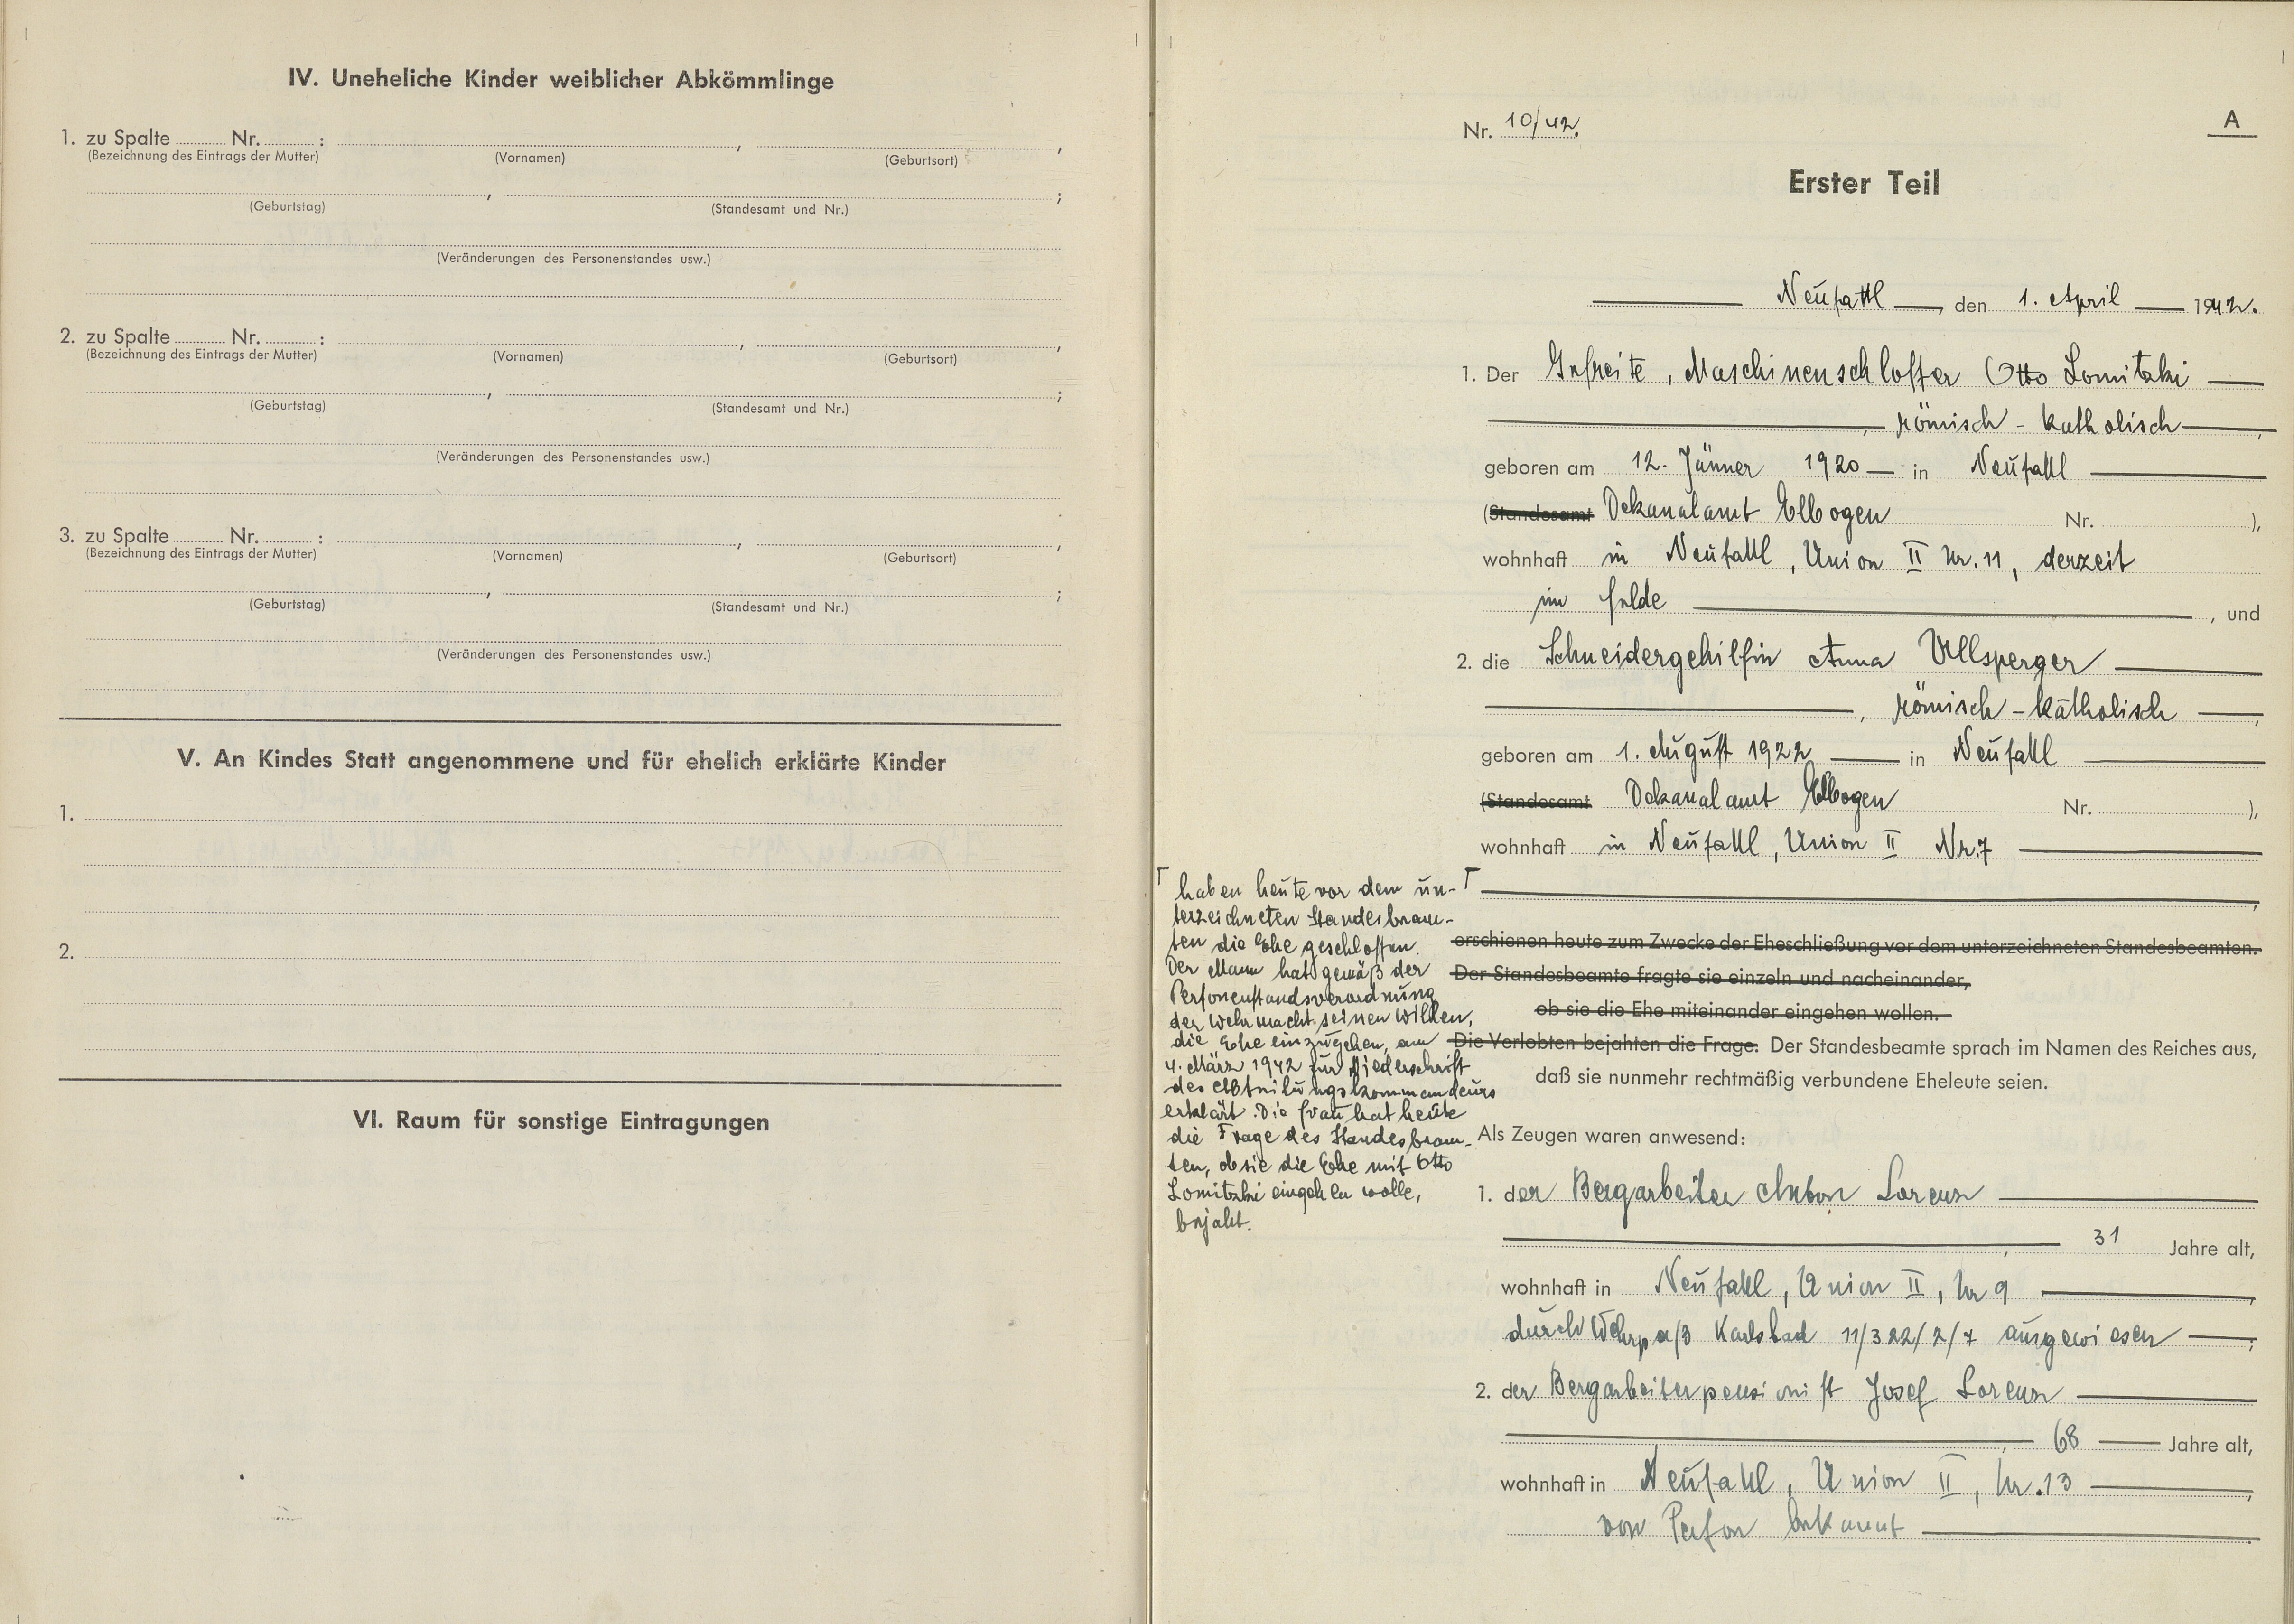 IV. Uneheliche Kinder weiblicher Abkömmlinge
1. zu Spalte ........ Nr. ........ : ........ , ........ ,
(Bezeichnung des Eintrags der Mutter) (Vornamen) (Geburtsort)
........ , ........ ;
(Geburtstag) (Standesamt und Nr.)
(Veränderungen des Personenstandes usw.)
2. zu Spalte ........ Nr. ........ : ........ , ........ ,
(Bezeichnung des Eintrags der Mutter) (Vornamen) (Geburtsort)
........ , ........ ;
(Geburtstag) (Standesamt und Nr.)
(Veränderungen des Personenstandes usw.)
3. zu Spalte ........ Nr. ........ : ........ , ........ ,
(Bezeichnung des Eintrags der Mutter) (Vornamen) (Geburtsort)
........ , ........ ;
(Geburtstag) (Standesamt und Nr.)
(Veränderungen des Personenstandes usw.)
V. An Kindes Statt angenommene und für ehelich erklärte Kinder
1.
2.
VI. Raum für sonstige Eintragungen
A
Nr. 10/42.
Erster Teil
Neusattl, den 1. April 1942.
1. Der Gefreite, Maschinenschlosser Otto Lomitzki
, römisch-katholisch,
geboren am 12. Jänner 1920 in Neusattl
(Standesamt Dekanalamt Elbogen Nr. ),
wohnhaft in Neusattl, Union II Nr. 11, derzeit
im Felde , und
2. die Schneidergehilfin Anna Ullsperger
, römisch-katholisch,
geboren am 1. August 1922 in Neusattl
(Standesamt Dekanalamt Elbogen Nr. ),
wohnhaft in Neusattl, Union II Nr. 7
,
haben heute vor dem un-
terzeichneten Standesbeam-
ten die Ehe geschlossen.
Der Mann hat gemäß der
Personenstandsverordnung
der Wehrmacht seinen Willen,
die Ehe einzugehen, am
4. März 1942 zur Niederschrift
des Abteilungskommandeurs
erklärt. Die Frau hat heute
die Frage des Standesbeam-
ten, ob sie die Ehe mit Otto
Lomitzki eingehen wolle,
bejaht.
erschienen heute zum Zwecke der Eheschließung vor dem unterzeichneten Standesbeamten.
Der Standesbeamte fragte sie einzeln und nacheinander,
ob sie die Ehe miteinander eingehen wollen.
Die Verlobten bejahten die Frage. Der Standesbeamte sprach im Namen des Reiches aus,
daß sie nunmehr rechtmäßig verbundene Eheleute seien.
Als Zeugen waren anwesend:
1. der Bergarbeiter Anton Lorenz
, 31 Jahre alt,
wohnhaft in Neusattl, Union II, Nr 9 ,
durch Wehrpaß Karlsbad 11/322/2/7 ausgewiesen ;
2. der Bergarbeiterpensionist Josef Lorenz
, 68 Jahre alt,
wohnhaft in Neusattl, Union II, Nr. 13 ,
von Person bekannt